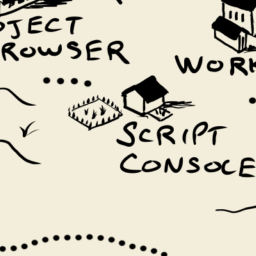 OJECT
ROWSER
WORK
SCRIPT
CONSOLE